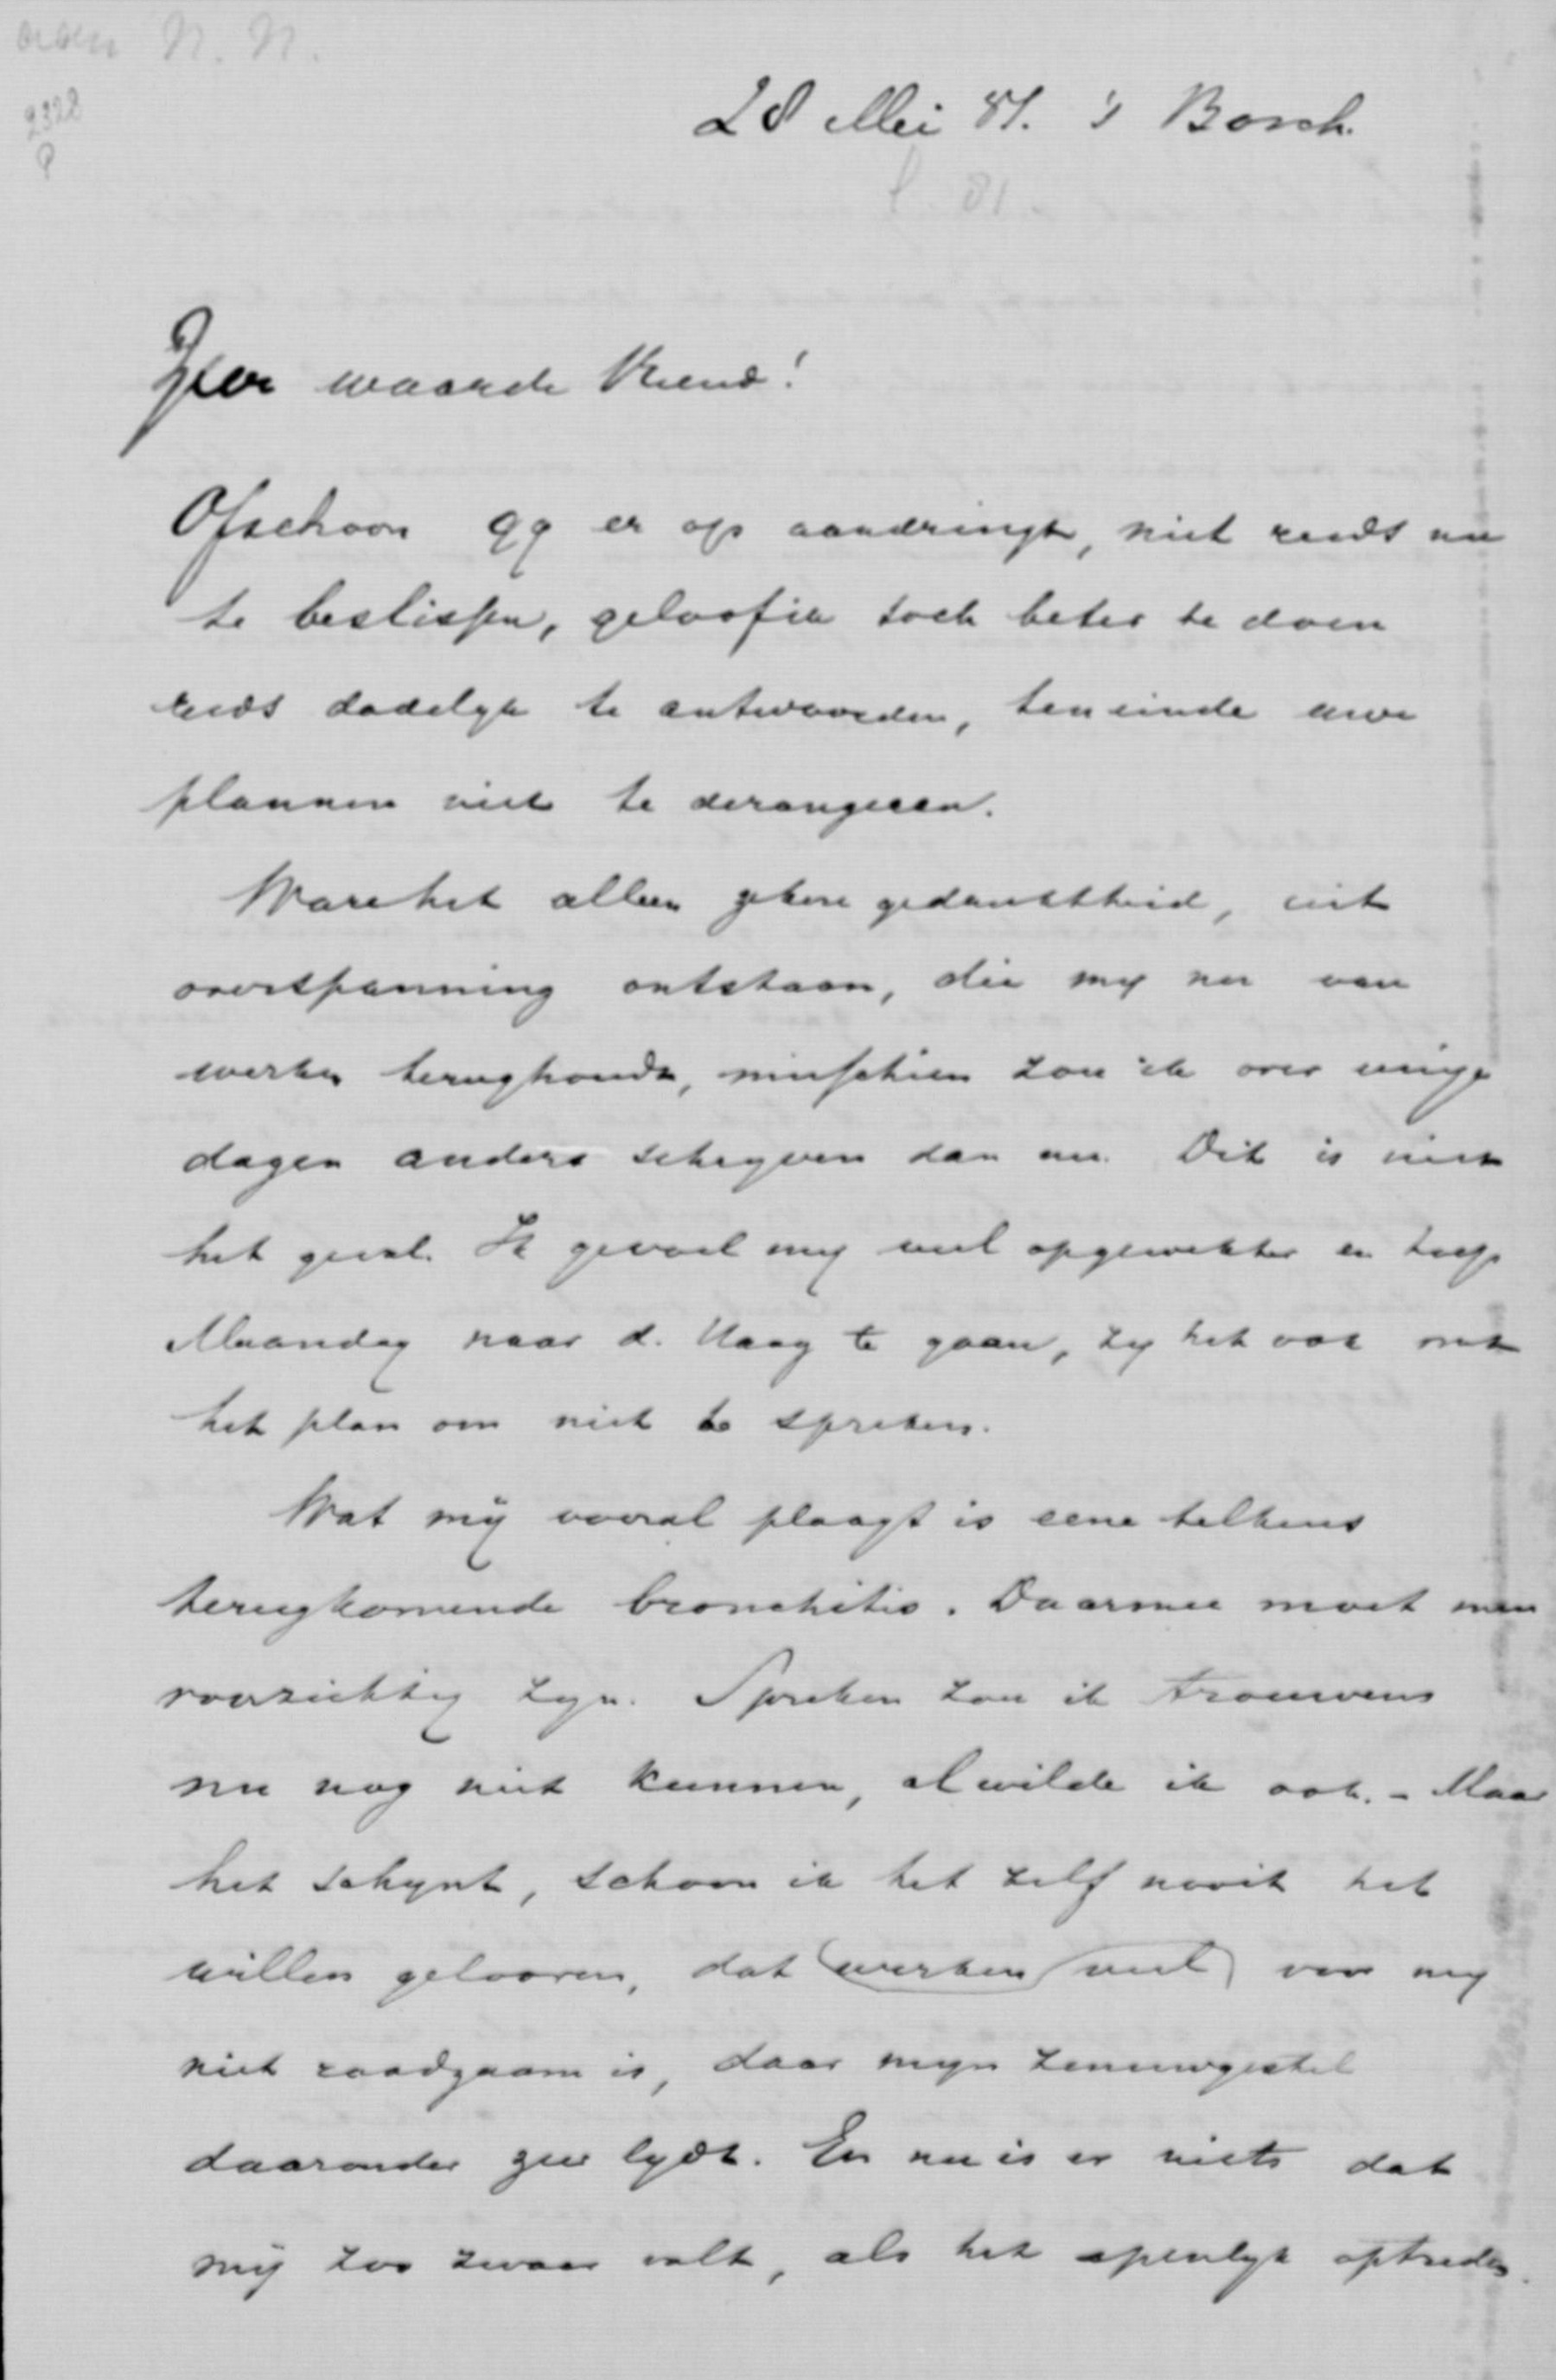 aan N. N.
2322
28 Mei 81. 's Bosch.
81.
Zeer waarde Vriend!
Ofschoon gy er op aandringt, niet reeds nu
te beslissen, geloof ik toch beter te doen
reeds dadelyk te antwoorden, ten einde uwe
plannen niet te derangeeren.
Ware het alleen zekere gedruktheid, uit
overspanning ontstaan, die my nu van
werken terughoudt, misschien zou ik over eenige
dagen anders schryven dan nu. Dit is niet
het geval. Ik gevoel my veel opgewekter en hoop
Maandag naar d. Haag te gaan, zy het ook met
het plan om niet te spreken.
Wat mij vooral plaagt is eene telkens
terugkomende bronchitis. Daarmee moet men
voorzichtig zyn. Spreken zou ik trouwens
nu nog niet kunnen, al wilde ik ook. - Maar
het schynt, schoon ik het zelf nooit heb
willen gelooven, dat werken veel voor my
niet raadzaam is, daar myn zenuwgestel
daaronder zeer lydt. En nu is er niets dat
mij zoo zwaar valt, als het openlyk optreden.